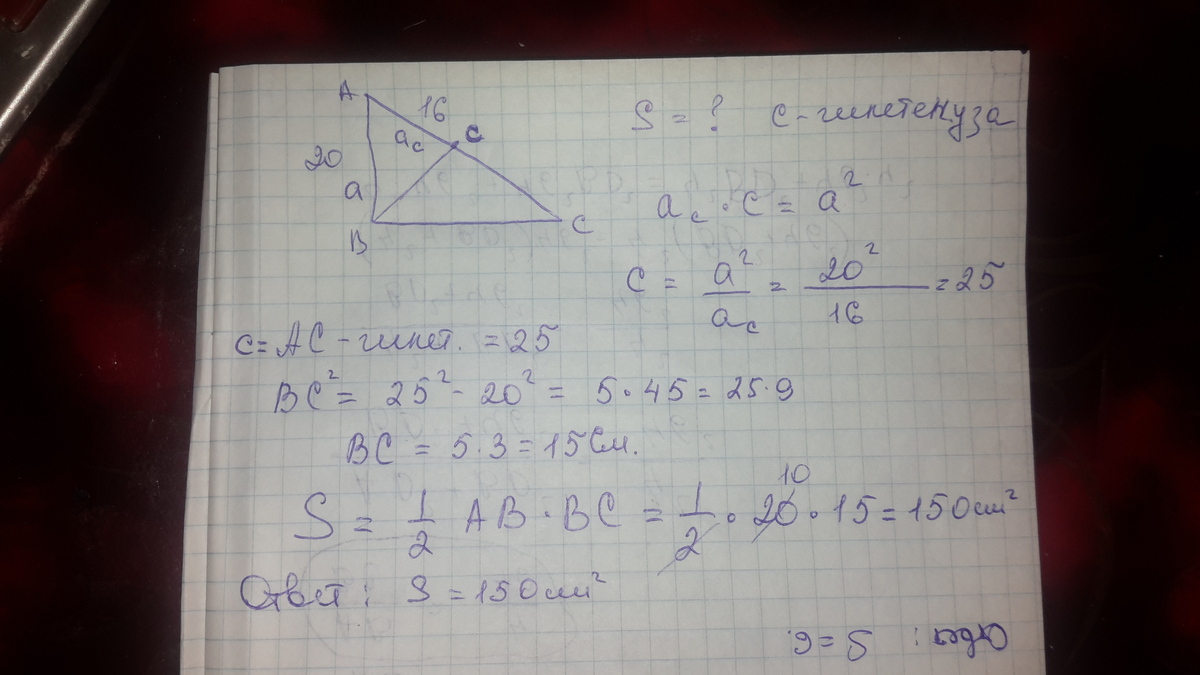 A
16
a_c
c
20
a
B
C
S = ? c - гипотенуза
a_c · c = a²
c = a²/a_c = 20²/16 = 25
c = AC - гипот. = 25
BC² = 25² - 20² = 5·45 = 25·9
BC = 5·3 = 15 см.
S = 1/2 AB · BC = 1/2 · 20 · 15 = 150 см²
10
Ответ: S = 150 см²